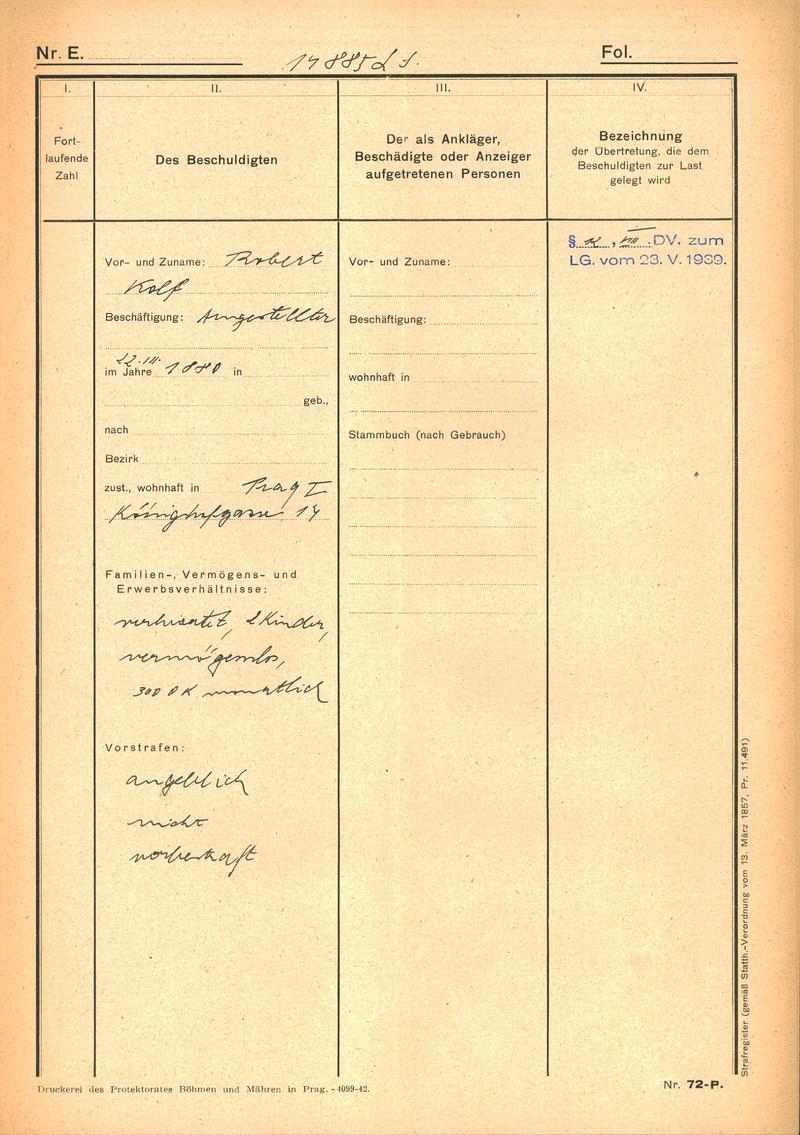 Nr. E.
Fol.
I.
II.
III.
IV.
Fort-
laufende
Zahl
Des Beschuldigten
Der als Ankläger,
Beschädigte oder Anzeiger
aufgetretenen Personen
Bezeichnung
der Übertretung, die dem
Beschuldigten zur Last
gelegt wird
Vor- und Zuname: Robert
Kolf
Beschäftigung: Angestellter
22.III.
im Jahre 1880 in
geb.,
nach
Bezirk
zust., wohnhaft in Prag I
Könighofgasse 14
Familien-, Vermögens- und
Erwerbsverhältnisse:
verheiratet, 2 Kinder,
vermögenslos,
300 0 K monatlich
Vorstrafen:
angeblich
nicht
vorbestraft
Vor- und Zuname:
Beschäftigung:
wohnhaft in
Stammbuch (nach Gebrauch)
§ , VIII DV. zum
LG. vom 23. V. 1939.
Strafregister (gemäß Statth.-Verordnung vom 13. März 1857, Pr. 11.491)
Druckerei des Protektorates Böhmen und Mähren in Prag. - 4099-42.
Nr. 72-P.